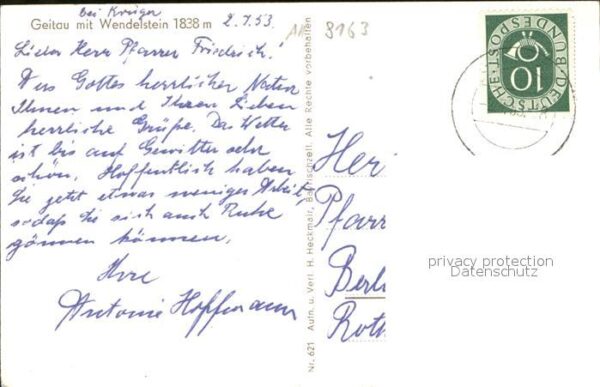 bei Krüger
Geitau mit Wendelstein 1838 m 2.7.53.
8163
Lieber Herr Pfarrer Friedrich!
Aus Gottes herrlicher Natur
Ihnen und Ihren Lieben
herrliche Grüße. Das Wetter
ist bis auf Gewitter sehr
schön. Hoffentlich haben
Sie jetzt etwas weniger Arbeit,
sodaß Sie sich auch Ruhe
gönnen können.
Ihre
Antonie Hoffmann
Nr. 621 Aufn. u. Verl. H. Heckmair, Bayrischzell. Alle Rechte vorbehalten
DEUTSCHE BUNDESPOST
10
Her
Pfarr
Berl
Roth
privacy protection
Datenschutz